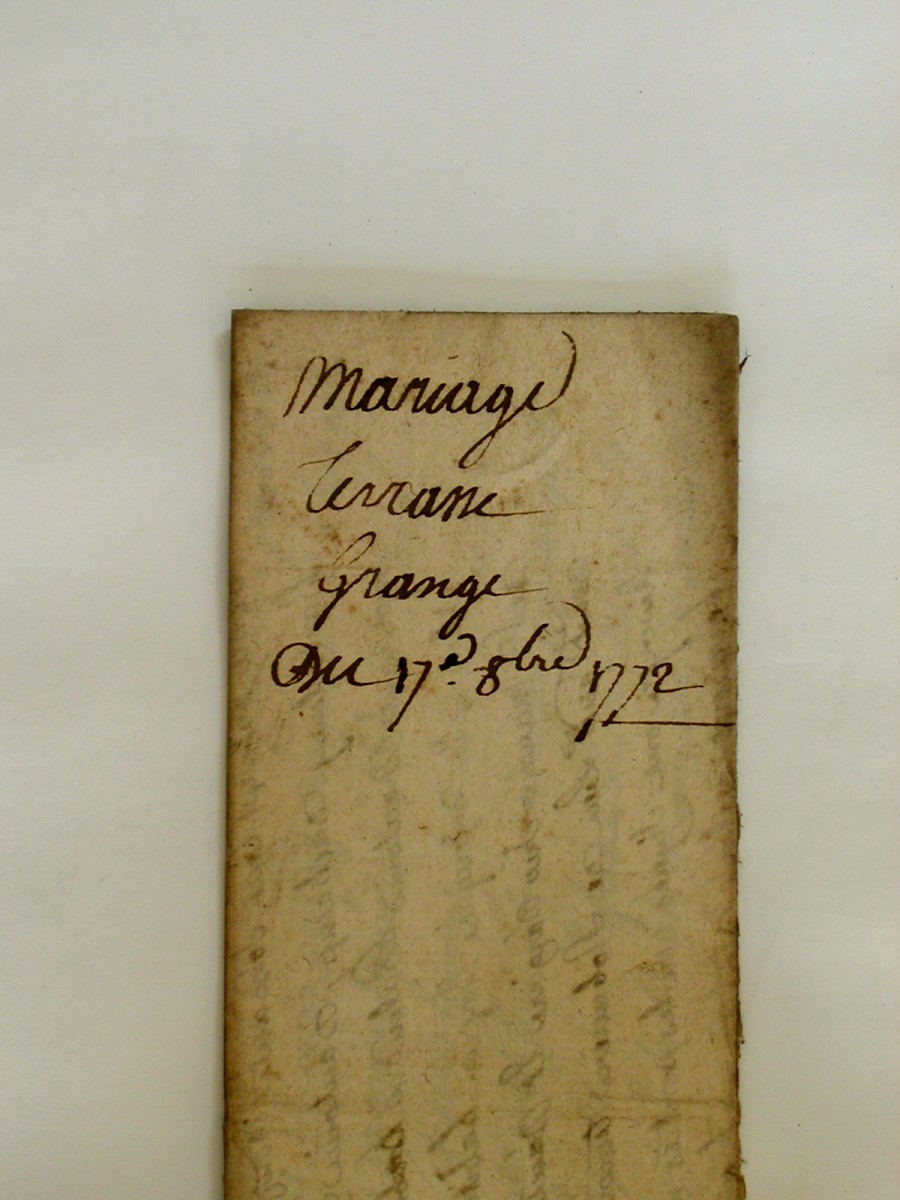 Mariage
Terrasse
Grange
Du 17e. 8bre 1772